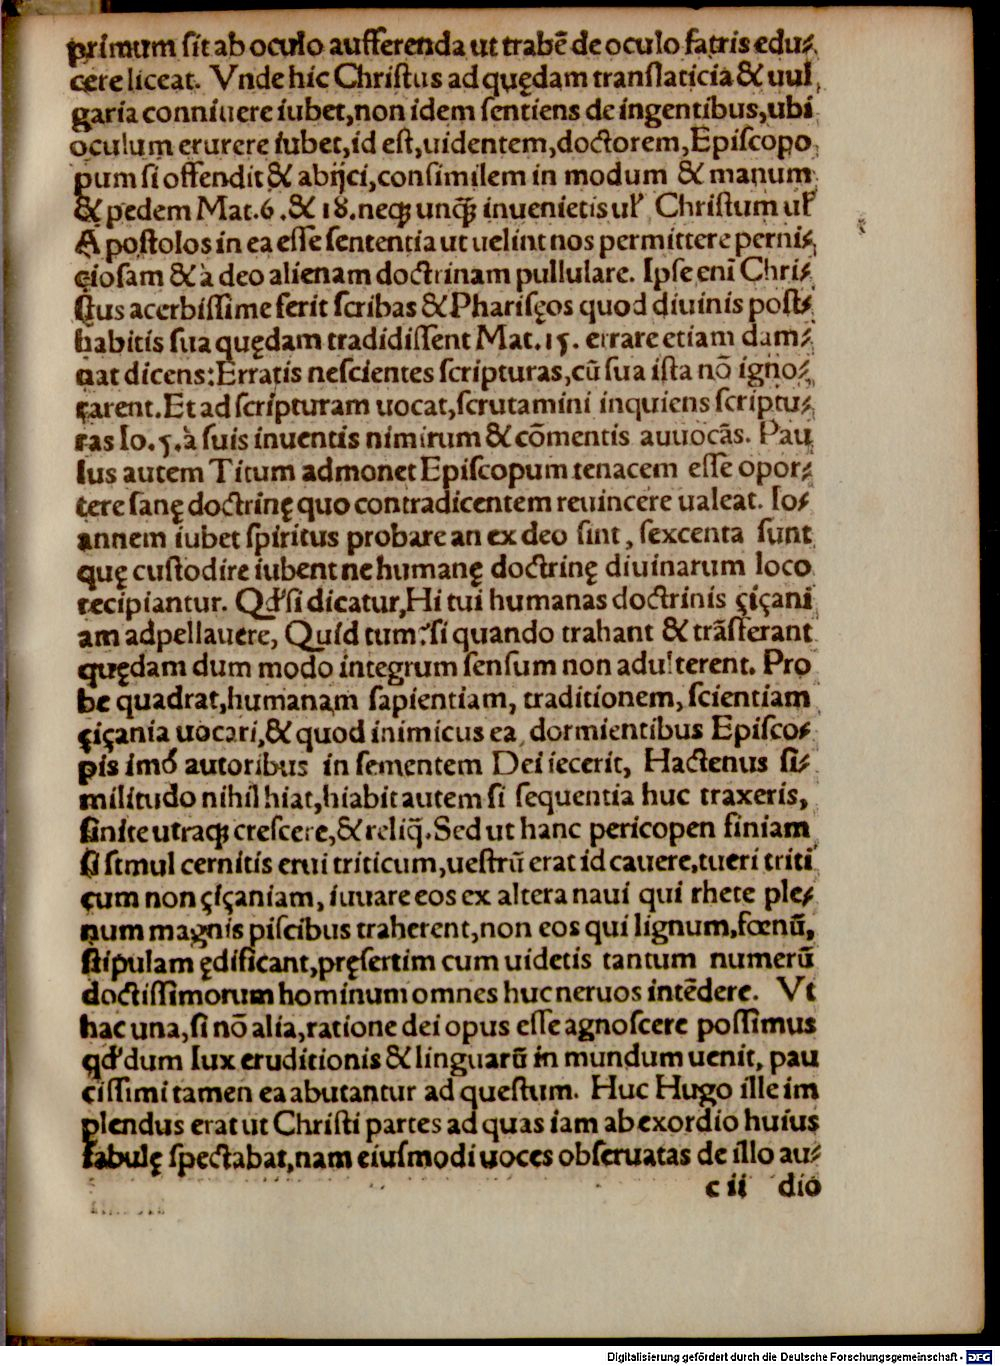 primum ſit ab oculo aufferenda ut trabē de oculo fatris edu⸗
cere liceat. Vnde hic Chriſtus ad quędam tranſlaticia & uul
garia conniuere iubet, non idem ſentiens de ingentibus, ubi
oculum erurere iubet, id eſt, uidentem, doctorem, Epiſcopo
pum ſi offendit & abijci, conſimilem in modum & manum
& pedem Mat. 6. & 18. neqꝫ unqꝫ̄ inuenietis ul' Chriſtum ul'
Apoſtolos in ea eſſe ſententia ut uelint nos permittere perni⸗
cioſam & à deo alienam doctrinam pullulare. Ipſe enī Chri⸗
ſtus acerbiſſime ferit ſcribas & Phariſęos quod diuinis poſt⸗
habitis ſua quędam tradidiſſent Mat. 15. errare etiam dam⸗
nat dicens: Erratis neſcientes ſcripturas, cū ſua iſta nō igno⸗
rarent. Et ad ſcripturam uocat, ſcrutamini inquiens ſcriptu⸗
ras Io. 5. à ſuis inuentis nimirum & cōmentis auuocās. Pau
lus autem Titum admonet Epiſcopum tenacem eſſe opor⸗
tere ſanę doctrinę quo contradicentem reuincere ualeat. Io⸗
annem iubet ſpiritus probare an ex deo ſint, ſexcenta ſunt
quę cuſtodire iubent ne humanę doctrinę diuinarum loco
recipiantur. Qd' ſi dicatur, Hi tui humanas doctrinis çiçani
am adpellauere, Quid tum? ſi quando trahant & trāſferant
quędam dum modo integrum ſenſum non adulterent. Pro
be quadrat, humanam ſapientiam, traditionem, ſcientiam
çiçania uocari, & quod inimicus ea, dormientibus Epiſco⸗
pis imó autoribus in ſementem Dei iecerit, Hactenus ſi⸗
militudo nihil hiat, hiabit autem ſi ſequentia huc traxeris,
ſinite utraqꝫ creſcere, & reliq̄. Sed ut hanc pericopen finiam
ſi ſtmul cernitis erui triticum, ueſtrū erat id cauere, tueri triti
cum non çiçaniam, iuuare eos ex altera naui qui rhete ple⸗
num magnis piſcibus traherent, non eos qui lignum, fœnū,
ſtipulam ędificant, pręſertim cum uidetis tantum numerū
doctiſſimorum hominum omnes huc neruos intēdere. Vt
hac una, ſi nō alia, ratione dei opus eſſe agnoſcere poſſimus
qd' dum lux eruditionis & linguarū in mundum uenit, pau
ciſſimi tamen ea abutantur ad queſtum. Huc Hugo ille im
plendus erat ut Chriſti partes ad quas iam ab exordio huius
fabulę ſpectabat, nam eiuſmodi uoces obſeruatas de illo au⸗
c ii dio
Digitalisierung gefördert durch die Deutsche Forschungsgemeinschaft - DFG